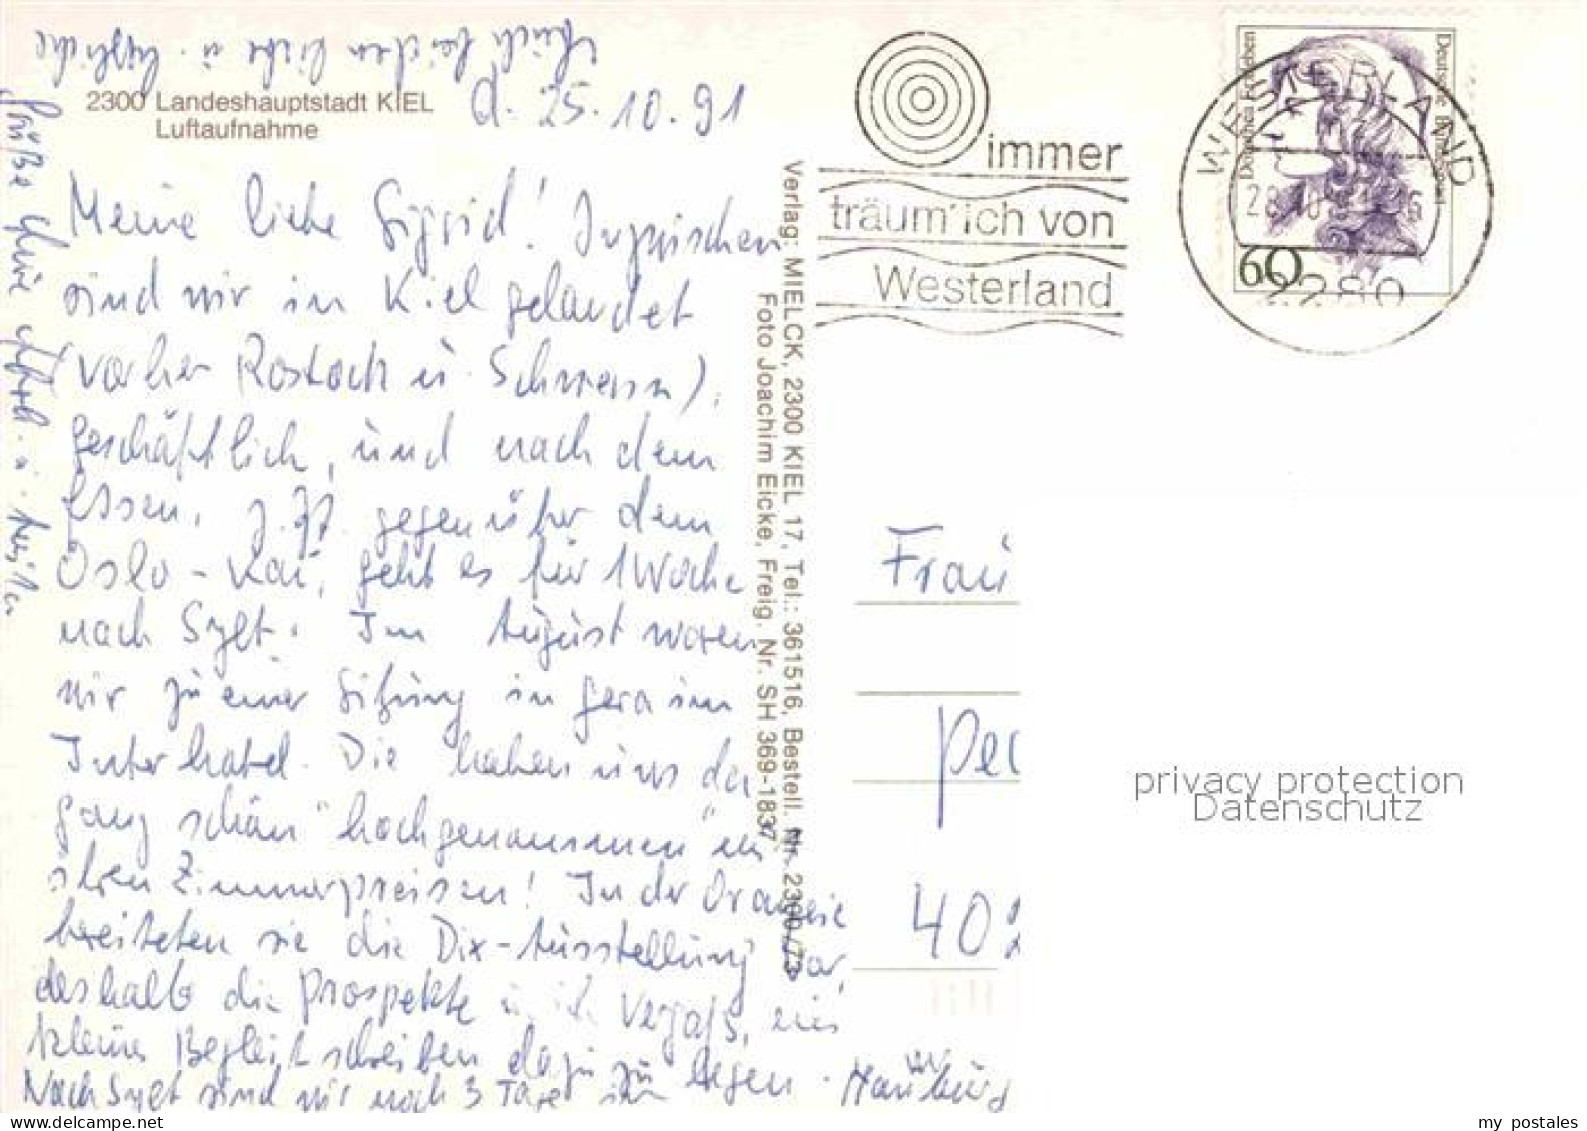 2300 Landeshauptstadt KIEL
Luftaufnahme
d. 25.10.91
Meine liebe Sigrid! Inzwischen
sind wir in Kiel gelandet
(vorher Rostock u. Schwerin),
geschäftlich, und nach dem
Essen, z. Zt. gegenüber dem
Oslo-Kai, geht es für 1 Woche
nach Sylt. Im August waren
wir zu einer Sitzung in Gera im
Interhotel. Die haben uns da
ganz schön "hochgenommen" in
ihren Zimmerpreisen! In der Orangerie
bereiteten sie die Dix-Ausstellung vor,
deshalb die Prospekte u. ich vergaß, ein
kleines Begleitschreiben dazu zu legen.
Nach Sylt sind wir noch 3 Tage in Hamburg
Euch beiden liebe u. herzliche
Grüße
Verlag: MIELCK, 2300 KIEL 17, Tel.: 361516, Bestell. Nr. 2300/73
Foto Joachim Eicke, Freig. Nr. SH 369-1837
immer
träum' ich von
Westerland
Deutsche Bundespost
Dorothea Erxleben
60
WESTERLAND
2280
Frau
40
privacy protection
Datenschutz
my postales